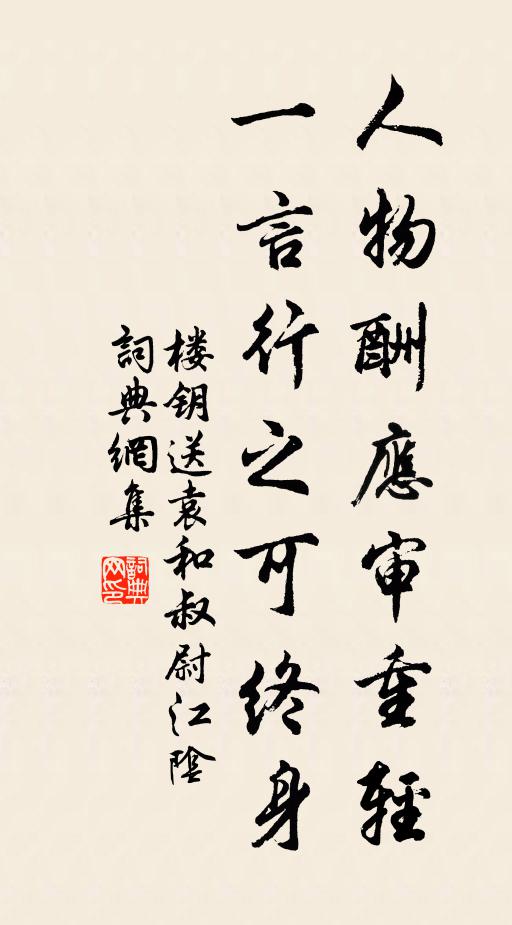 人物酬應审重輕
一言行之可終身
楼钥送袁和叔尉江陰
詞典網集
詞典网印